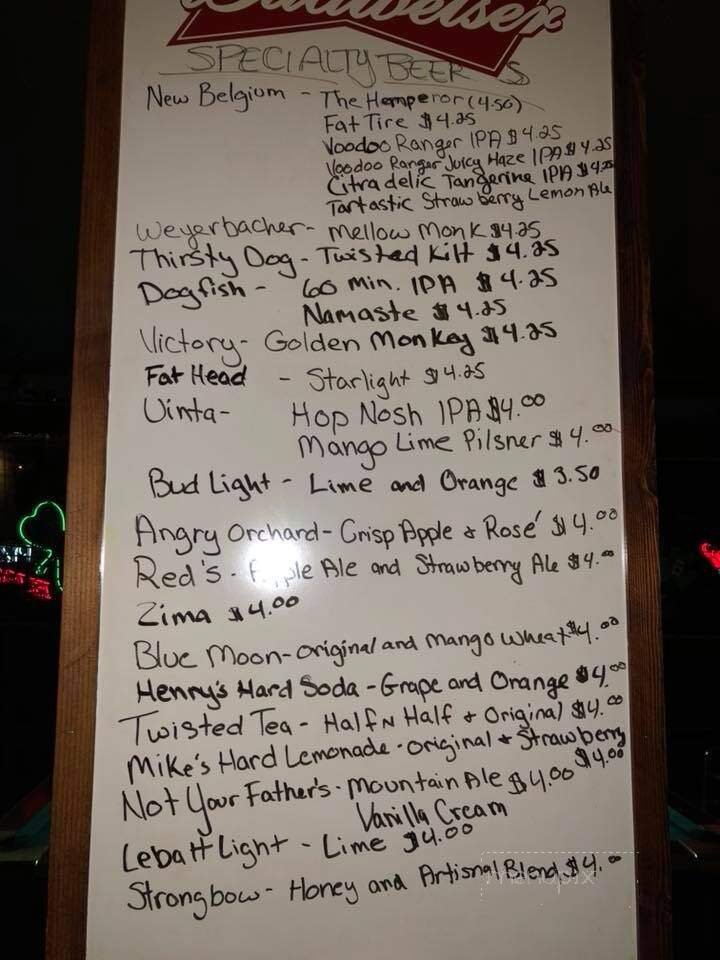 Budweiser
SPECIALTY BEERS
New Belgium - The Hemperor (4.50)
Fat Tire $4.25
Voodoo Ranger IPA $4.25
Voodoo Ranger Juicy Haze IPA $4.25
Citradelic Tangerine IPA $4.25
Tartastic Strawberry Lemon Ale
Weyerbacher - Mellow Monk $4.25
Thirsty Dog - Twisted Kilt $4.25
Dogfish - 60 Min. IPA $4.25
Namaste $4.25
Victory - Golden Monkey $4.25
Fat Head - Starlight $4.25
Uinta - Hop Nosh IPA $4.00
Mango Lime Pilsner $4.00
Bud Light - Lime and Orange $3.50
Angry Orchard - Crisp Apple & Rosé $4.00
Red's - Apple Ale and Strawberry Ale $4.00
Zima $4.00
Blue Moon - Original and Mango Wheat $4.00
Henry's Hard Soda - Grape and Orange $4.00
Twisted Tea - Half N Half & Original $4.00
Mike's Hard Lemonade - Original & Strawberry
$4.00
Not Your Father's - Mountain Ale $4.00
Vanilla Cream
Lebatt Light - Lime $4.00
Strongbow - Honey and Artisnal Blend $4.00
menupix